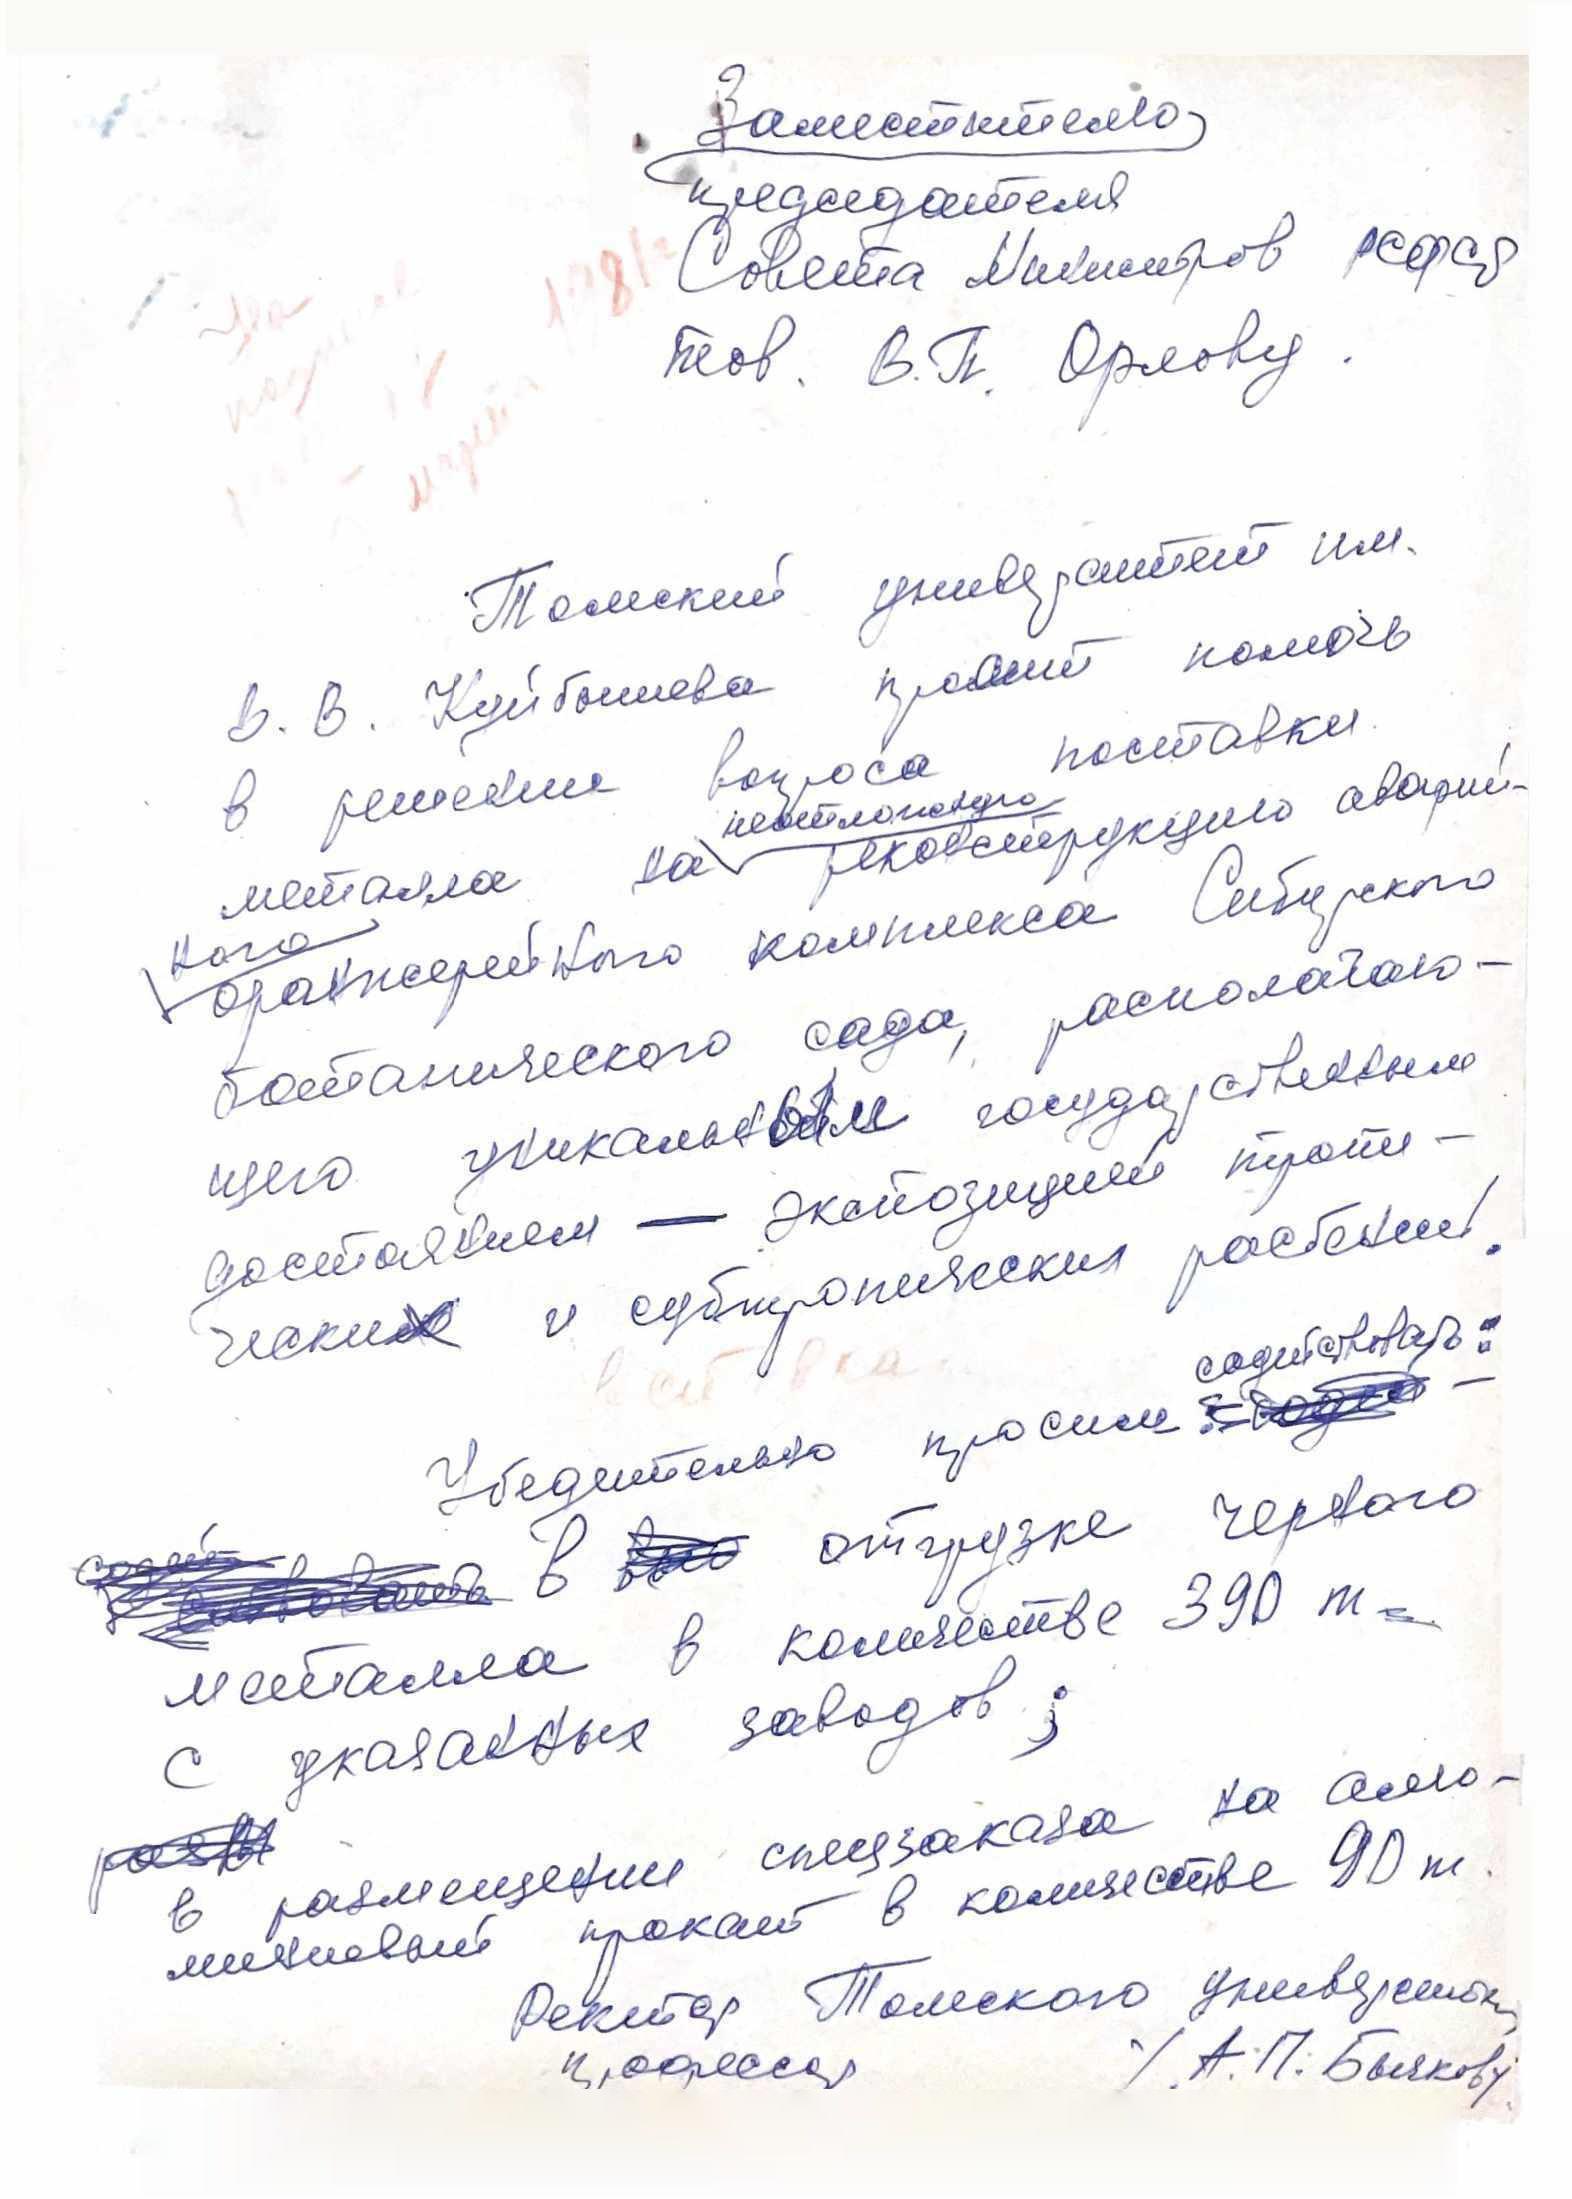 Заместителю
председателя
Совета Министров РСФСР
тов. В.П. Орлову.
1981г
марта
Томский университет им.
В. В. Куйбышева просит помочь
в решении вопроса поставки
неотложную
металла на реконструкцию аварий-
ного
оранжерейного комплекса Сибирского
ботанического сада, располагаю-
щего уникальным государственным
достоянием — экспозицией тропи-
ческих и субтропических растений.
вставка
содействовать:
Убедительно просим
в отгрузке черного
металла в количестве 390 т
с указанных заводов;
в размещении спецзаказа на алю-
миниевый прокат в количестве 90 т.
Ректор Томского университета
профессор / А.П. Бычков/